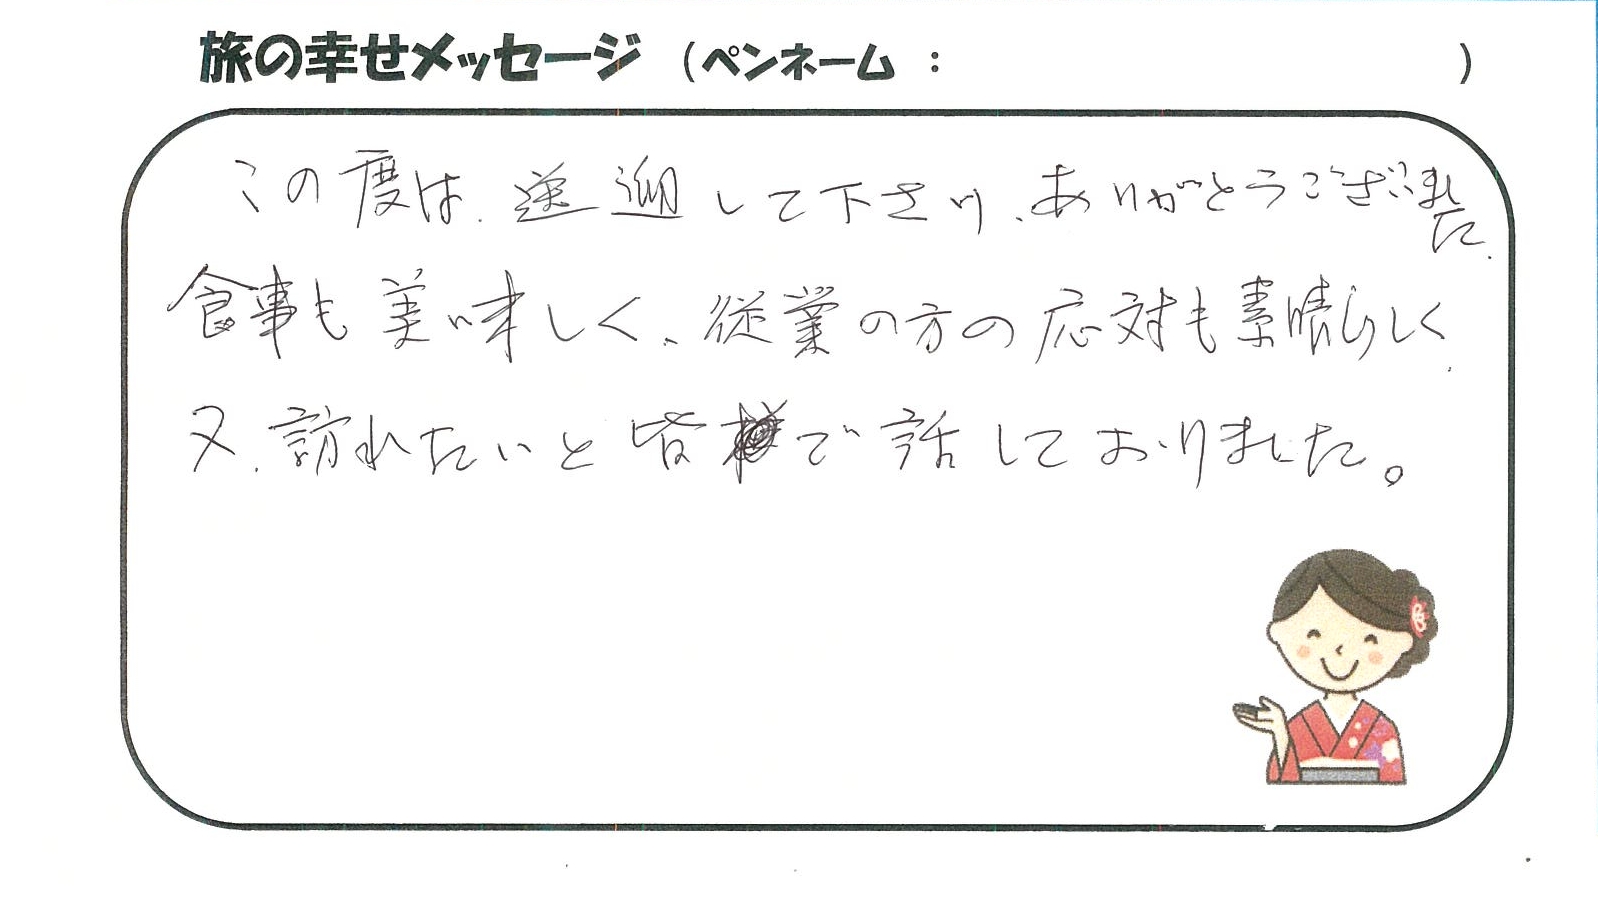 旅の幸せメッセージ (ペンネーム : )
この度は、送迎して下さり、ありがとうございました。
食事も美味しく、従業の方の応対も素晴らしく、
又、訪れたいと皆で話しておりました。